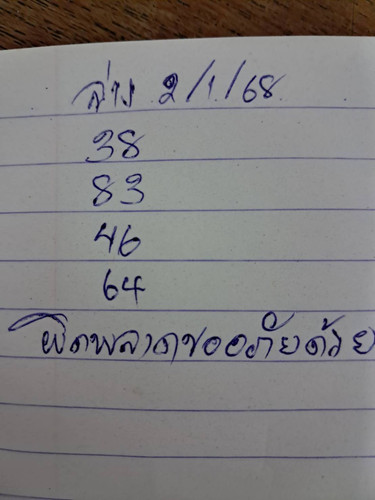 ล่าง 2/1/68
38
83
46
64
ผิดพลาดขออภัยด้วย